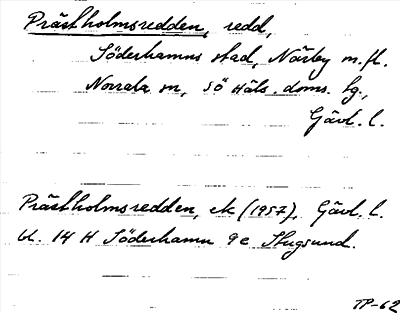 Prästholmsredden, redd,
Söderhamns stad, Närby m.fl.
Norrala sn, Sö Häls. doms. lg.,
Gävl. l.
Prästholmsredden, ek (1957), Gävl. l.
bl. 14 H Söderhamn 9e Stugsund.
TP-62